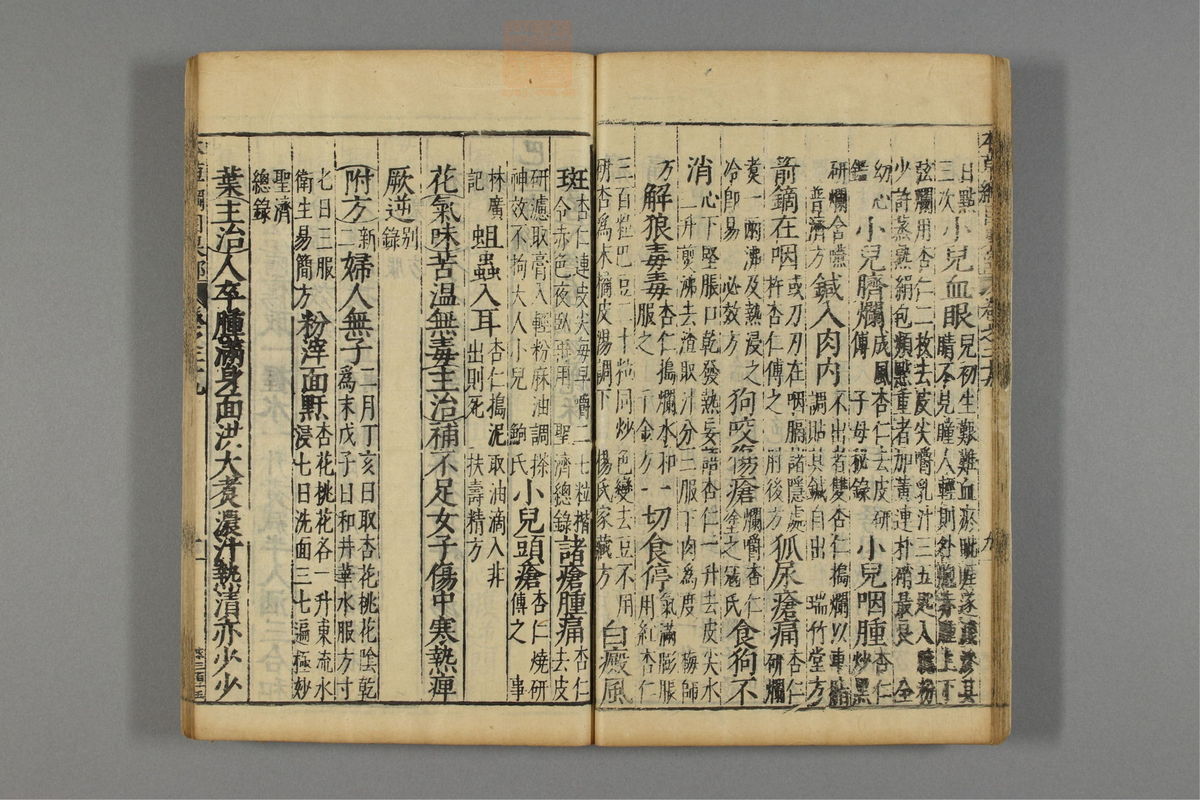 日點
三次小兒血眼兒初生艱難血瘀眦眶遂
弦爛用杏仁二枚去皮尖嚼乳汁三五匙入
少許蒸熟絹包頻點重者加黃連朴硝最良
幼心小兒臍爛成風杏仁去皮研傅子母秘錄小兒咽腫杏仁炒黑
研爛含嚥普濟方鍼入肉內不出者雙杏仁搗爛以車脂調貼其鍼自出瑞竹堂方
箭鏑在咽或刀刃在咽膈諸隱處杵杏仁傅之肘後方狐尿瘡痛杏仁研爛
煑一兩沸及熱浸之冷卽易必效方狗咬傷瘡爛嚼杏仁塗之寇氏食狗不
消心下堅脹口乾發熱妄語杏仁一升去皮尖水一升煎沸去渣取汁分三服下肉爲度梅師
方解狼毒毒杏仁搗爛水和服之千金方一切食停氣滿膨脹用紅杏仁
三百粒巴豆二十粒同炒色變去豆不用研杏爲末橘皮湯調下楊氏家藏方白癜風
斑杏仁連皮尖每早嚼二七粒揩令赤色夜臥再用聖濟總錄諸瘡腫痛杏仁去皮
研濾取膏入輕粉麻油調搽神效不拘大人小兒鮑氏小兒頭瘡杏仁燒研傅之事
林廣記蛆蟲入耳杏仁搗泥取油滴入非出則死扶壽精方
花氣味苦溫無毒主治補不足女子傷中寒熱痺
厥逆別錄
附方新二婦人無子二月丁亥日取杏花桃花陰乾爲末戊子日和井華水服方寸
七日三服衛生易簡方粉滓面䵟杏花桃花各一升東流水浸七日洗面三七遍極妙
聖濟總錄
葉主治人卒腫滿身面洪大煑濃汁熱漬亦少少